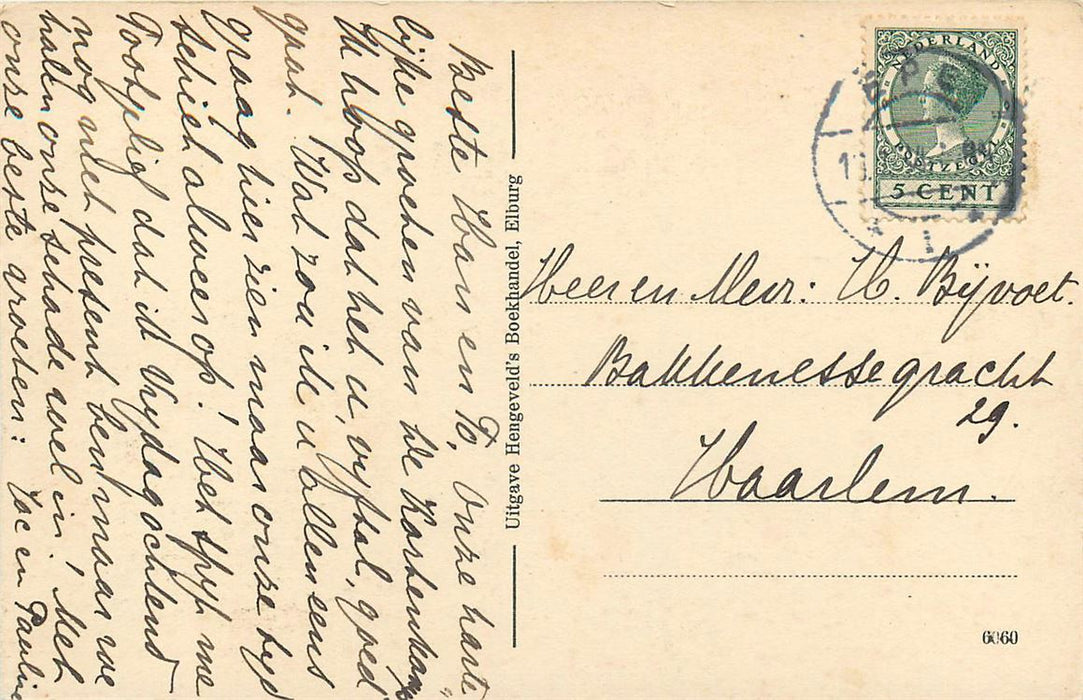 Beste Ham en To, Onze harte
lijke groeten van de
Ik hoop dat het u, vyftal, goed
gaat. Wat zou ik u allen eens
graag hier zien maar onze tyd
schiet alweer op! Het spyt me
dat ik Vrydagochtend
nog niet present ben maar we
halen onze schade wel in, Met
onze beste groeten: Jac en Pauline
Uitgave Hengeveld's Boekhandel, Elburg
NEDERLAND
POSTZEGEL
5 CENT
Heer en Mevr: H. Bijvoet.
Bakkenessegracht
29.
Haarlem.
6060